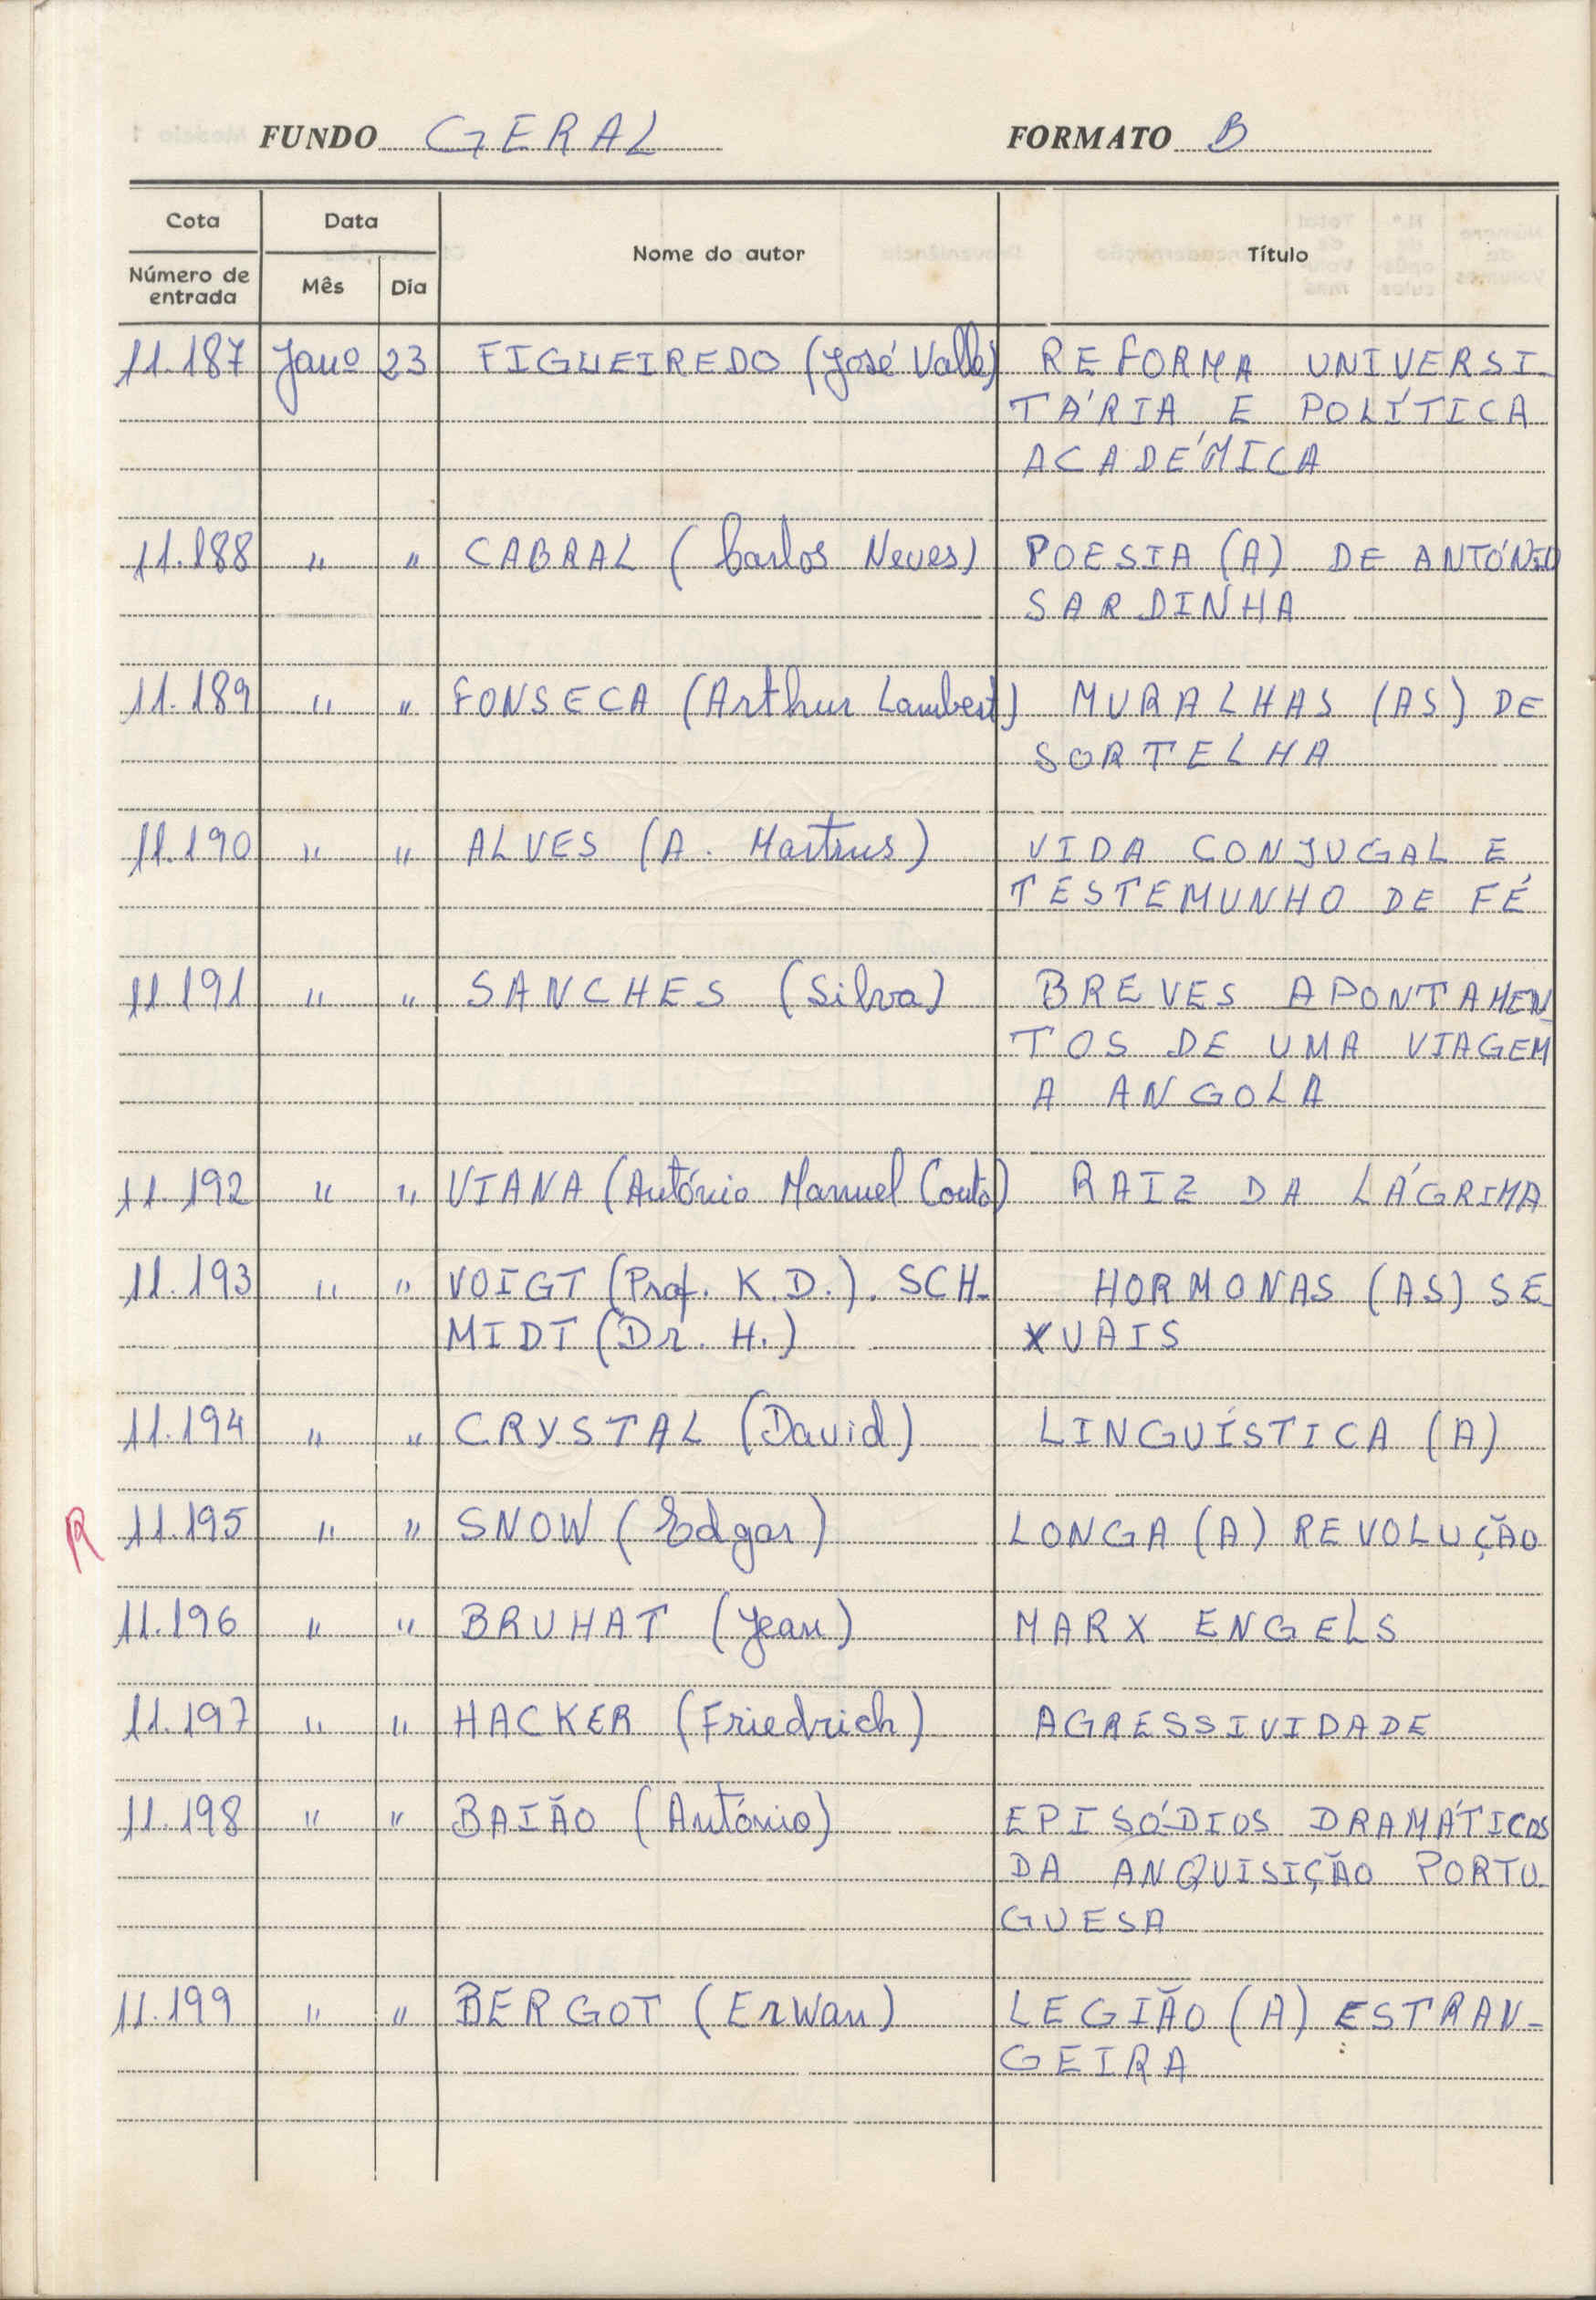 FUNDO GERAL FORMATO B
Cota Data Nome do autor Título
Número de entrada Mês Dia
11.187 Janº 23 FIGUEIREDO (José Valle) REFORMA UNIVERSI-
TÁRIA E POLÍTICA
ACADÉMICA
11.188 " " CABRAL (Carlos Neves) POESIA (A) DE ANTÓNIO
SARDINHA
11.189 " " FONSECA (Arthur Lambert) MURALHAS (AS) DE
SORTELHA
11.190 " " ALVES (A. Martins) VIDA CONJUGAL E
TESTEMUNHO DE FÉ
11.191 " " SANCHES (Silva) BREVES APONTAMEN-
TOS DE UMA VIAGEM
A ANGOLA
11.192 " " VIANA (António Manuel Couto) RAIZ DA LÁGRIMA
11.193 " " VOIGT (Prof. K.D.). SCH- HORMONAS (AS) SE-
MIDT (Dr. H.) XUAIS
11.194 " " CRYSTAL (David) LINGUÍSTICA (A)
R 11.195 " " SNOW (Edgar) LONGA (A) REVOLUÇÃO
11.196 " " BRUHAT (Jean) MARX ENGELS
11.197 " " HACKER (Friedrich) AGRESSIVIDADE
11.198 " " BAIÃO (António) EPISÓDIOS DRAMÁTICOS
DA ANQUISIÇÃO PORTU-
GUESA
11.199 " " BERGOT (Erwan) LEGIÃO (A) ESTRAN-
GEIRA